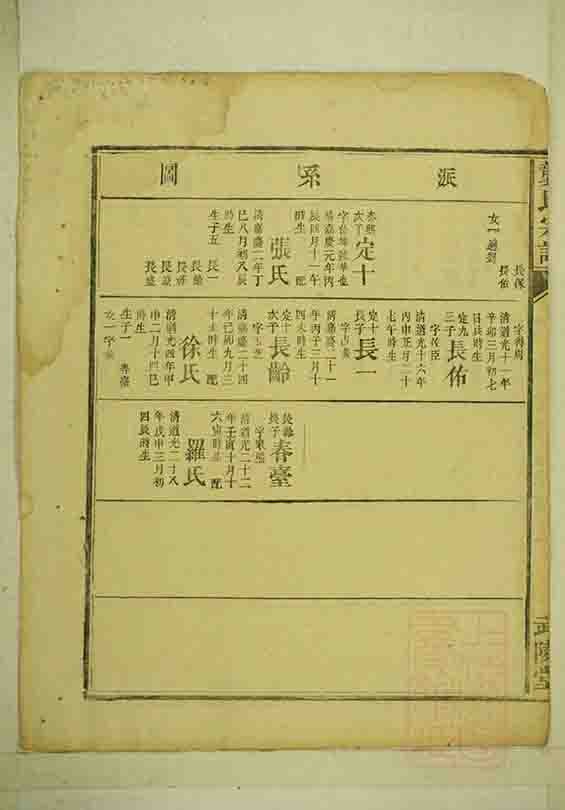 派系圖
氏宗譜
武陵堂
長保
長佑
女一適劉
次子
定十
清嘉慶元年丙
辰四月十一午
時生 配
張氏
清嘉慶二年丁
巳八月初八辰
時生
生子五 長一
長齡
長
長
長盛
清道光十一年
辛卯三月初七
日辰時生
定九
三子
長佑
字佐臣
清道光十六年
丙申正月二十
七午時生
定十
長子
長一
清嘉慶二十一
年丙子三月十
四未時生
定十
次子
長齡
清嘉慶二十四
年己卯九月三
十未時生 配
徐氏
清道光四年甲
申二月十四巳
時生
生子一 春臺
女一字
長齡
長子
春臺
清道光二十二
年壬寅十月十
六寅時生 配
羅氏
清道光二十八
年戊申三月初
四辰時生